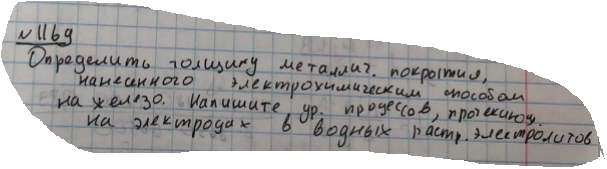 №1169
Определить толщину металлич. покрытия,
нанесинного электрохимическим способом
на железо. Напишите ур. процессов, протекающ.
на электродах в водных раств. электролитов